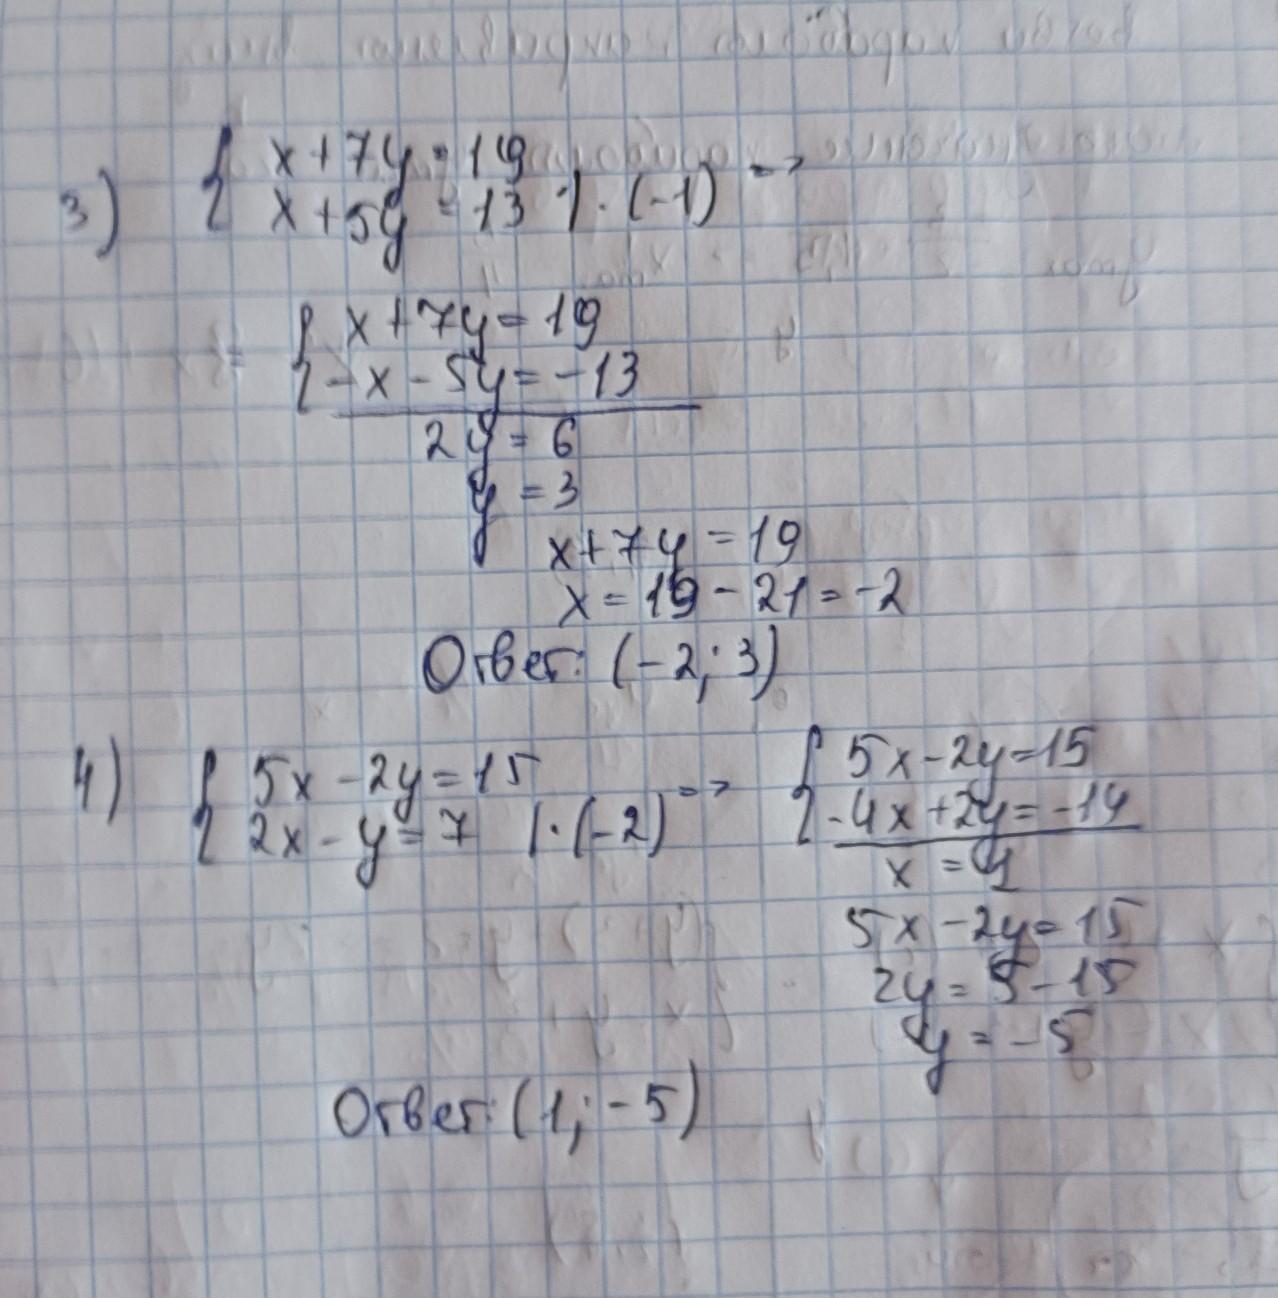 3) { x + 7y = 19
x + 5y = 13 | · (-1) =>
{ x + 7y = 19
-x - 5y = -13
2y = 6
y = 3
x + 7y = 19
x = 19 - 21 = -2
Ответ: (-2; 3)
4) { 5x - 2y = 15
2x - y = 7 | · (-2) =>
{ 5x - 2y = 15
-4x + 2y = -14
x = 1
5x - 2y = 15
2y = 5 - 15
y = -5
Ответ: (1; -5)